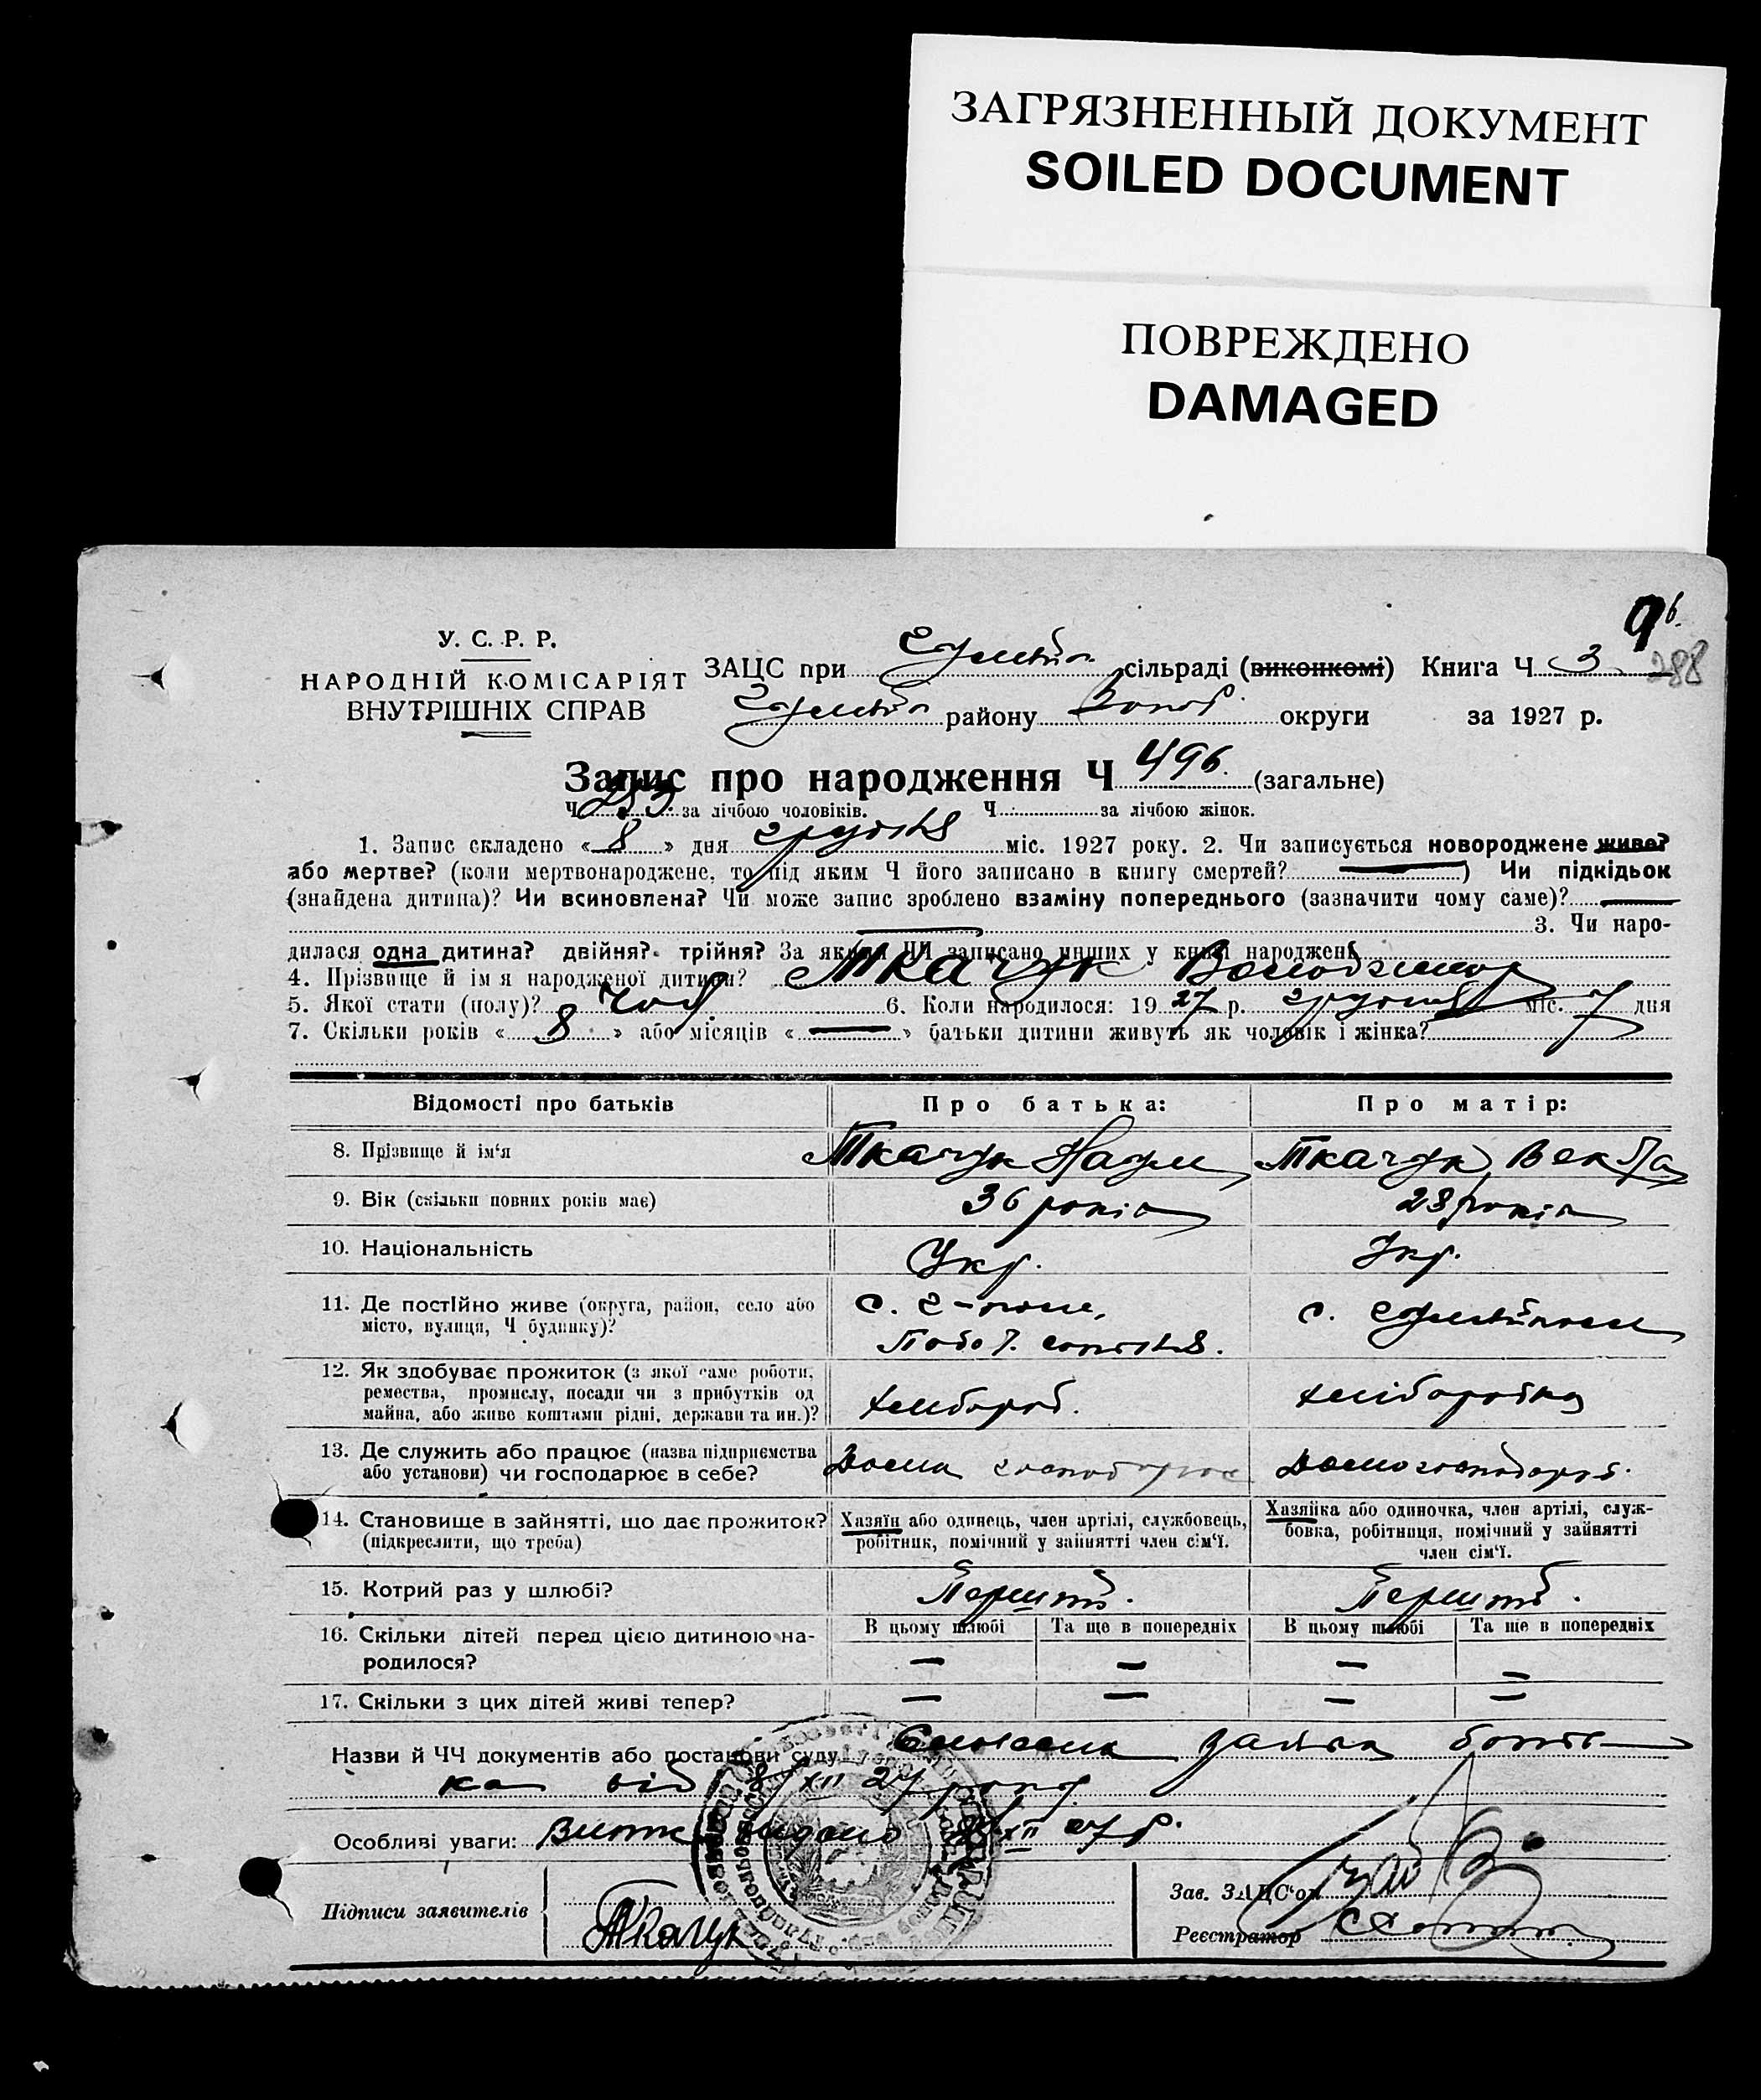 ЗАГРЯЗНЕННЫЙ ДОКУМЕНТ
SOILED DOCUMENT
ПОВРЕЖДЕНО
DAMAGED
288
У. С. Р. Р.
НАРОДНІЙ КОМІСАРІЯТ
ВНУТРІШНІХ СПРАВ
ЗАЦС при сільраді (виконкомі) Книга Ч 3
району округи за 1927 р.
Запис про народження Ч 496 (загальне)
Ч 253 за лічбою чоловіків. Ч за лічбою жінок.
1. Запис складено «8» дня грудня міс. 1927 року. 2. Чи записується новороджене живе?
або мертве? (коли мертвонароджене, то під яким Ч його записано в книгу смертей? —) Чи підкідьок
(знайдена дитина)? Чи всиновлена? Чи може запис зроблено взаміну попереднього (зазначити чому саме)? —
3. Чи наро-
дилася одна дитина? двійня? трійня? За якими ЧЧ записано инших у книзі народжень
4. Прізвище й ім'я народженої дитини? Ткачук Володимир
5. Якої стати (полу)? чол 6. Коли народилося: 1927 р. грудня міс. 7 дня
7. Скільки років «8» або місяців «—» батьки дитини живуть як чоловік і жінка?
Відомості про батьків Про батька: Про матір:
8. Прізвище й ім'я Ткачук Наум Ткачук Векла
9. Вік (скільки повних років має) 36 років 28 років
10. Національність Укр. Укр.
11. Де постійно живе (округа, район, село або
місто, вулиця, Ч будинку)? с. с.
12. Як здобуває прожиток (з якої саме роботи,
ремества, промислу, посади чи з прибутків од
майна, або живе коштами рідні, держави та ин.)? хлібороб. хліборобка
13. Де служить або працює (назва підприємства
або установи) чи господарює в себе? Дома господарює Домогосподарює.
14. Становище в зайнятті, що дає прожиток?
(підкреслити, що треба)
Хазяїн або одинець, член артілі, службовець,
робітник, помічний у зайнятті член сім'ї.
Хазяйка або одиночка, член артілі, служ-
бовка, робітниця, помічний у зайнятті
член сім'ї.
15. Котрий раз у шлюбі? Перший. Перший.
16. Скільки дітей перед цією дитиною на-
родилося?
В цьому шлюбі Та ще в попередніх В цьому шлюбі Та ще в попередніх
— — — —
17. Скільки з цих дітей живі тепер? — — — —
Назви й ЧЧ документів або постанови суду Словесна заява батть-
ка від 8/XII 27 року
Особливі уваги: Витяг видано 8/XII 27 р.
Підписи заявителів
Ткачук
Зав. ЗАЦС'ом
Реєстратор